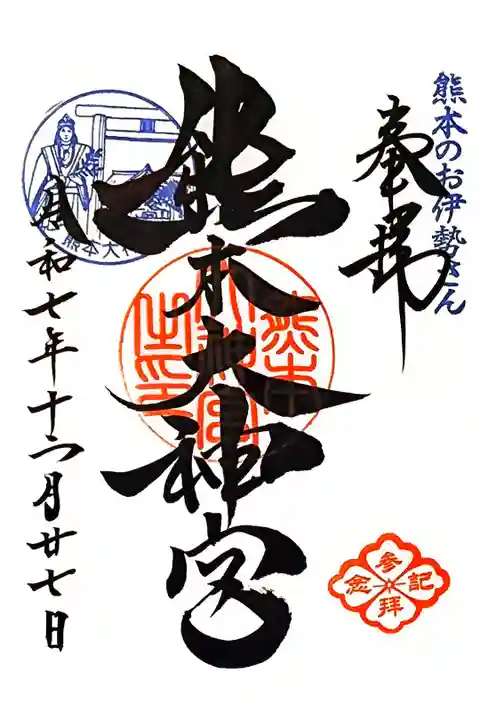 熊本のお伊勢さん
奉拝
熊本大神宮
熊本大神宮之印
令和七年十二月廿七日
参拝記念